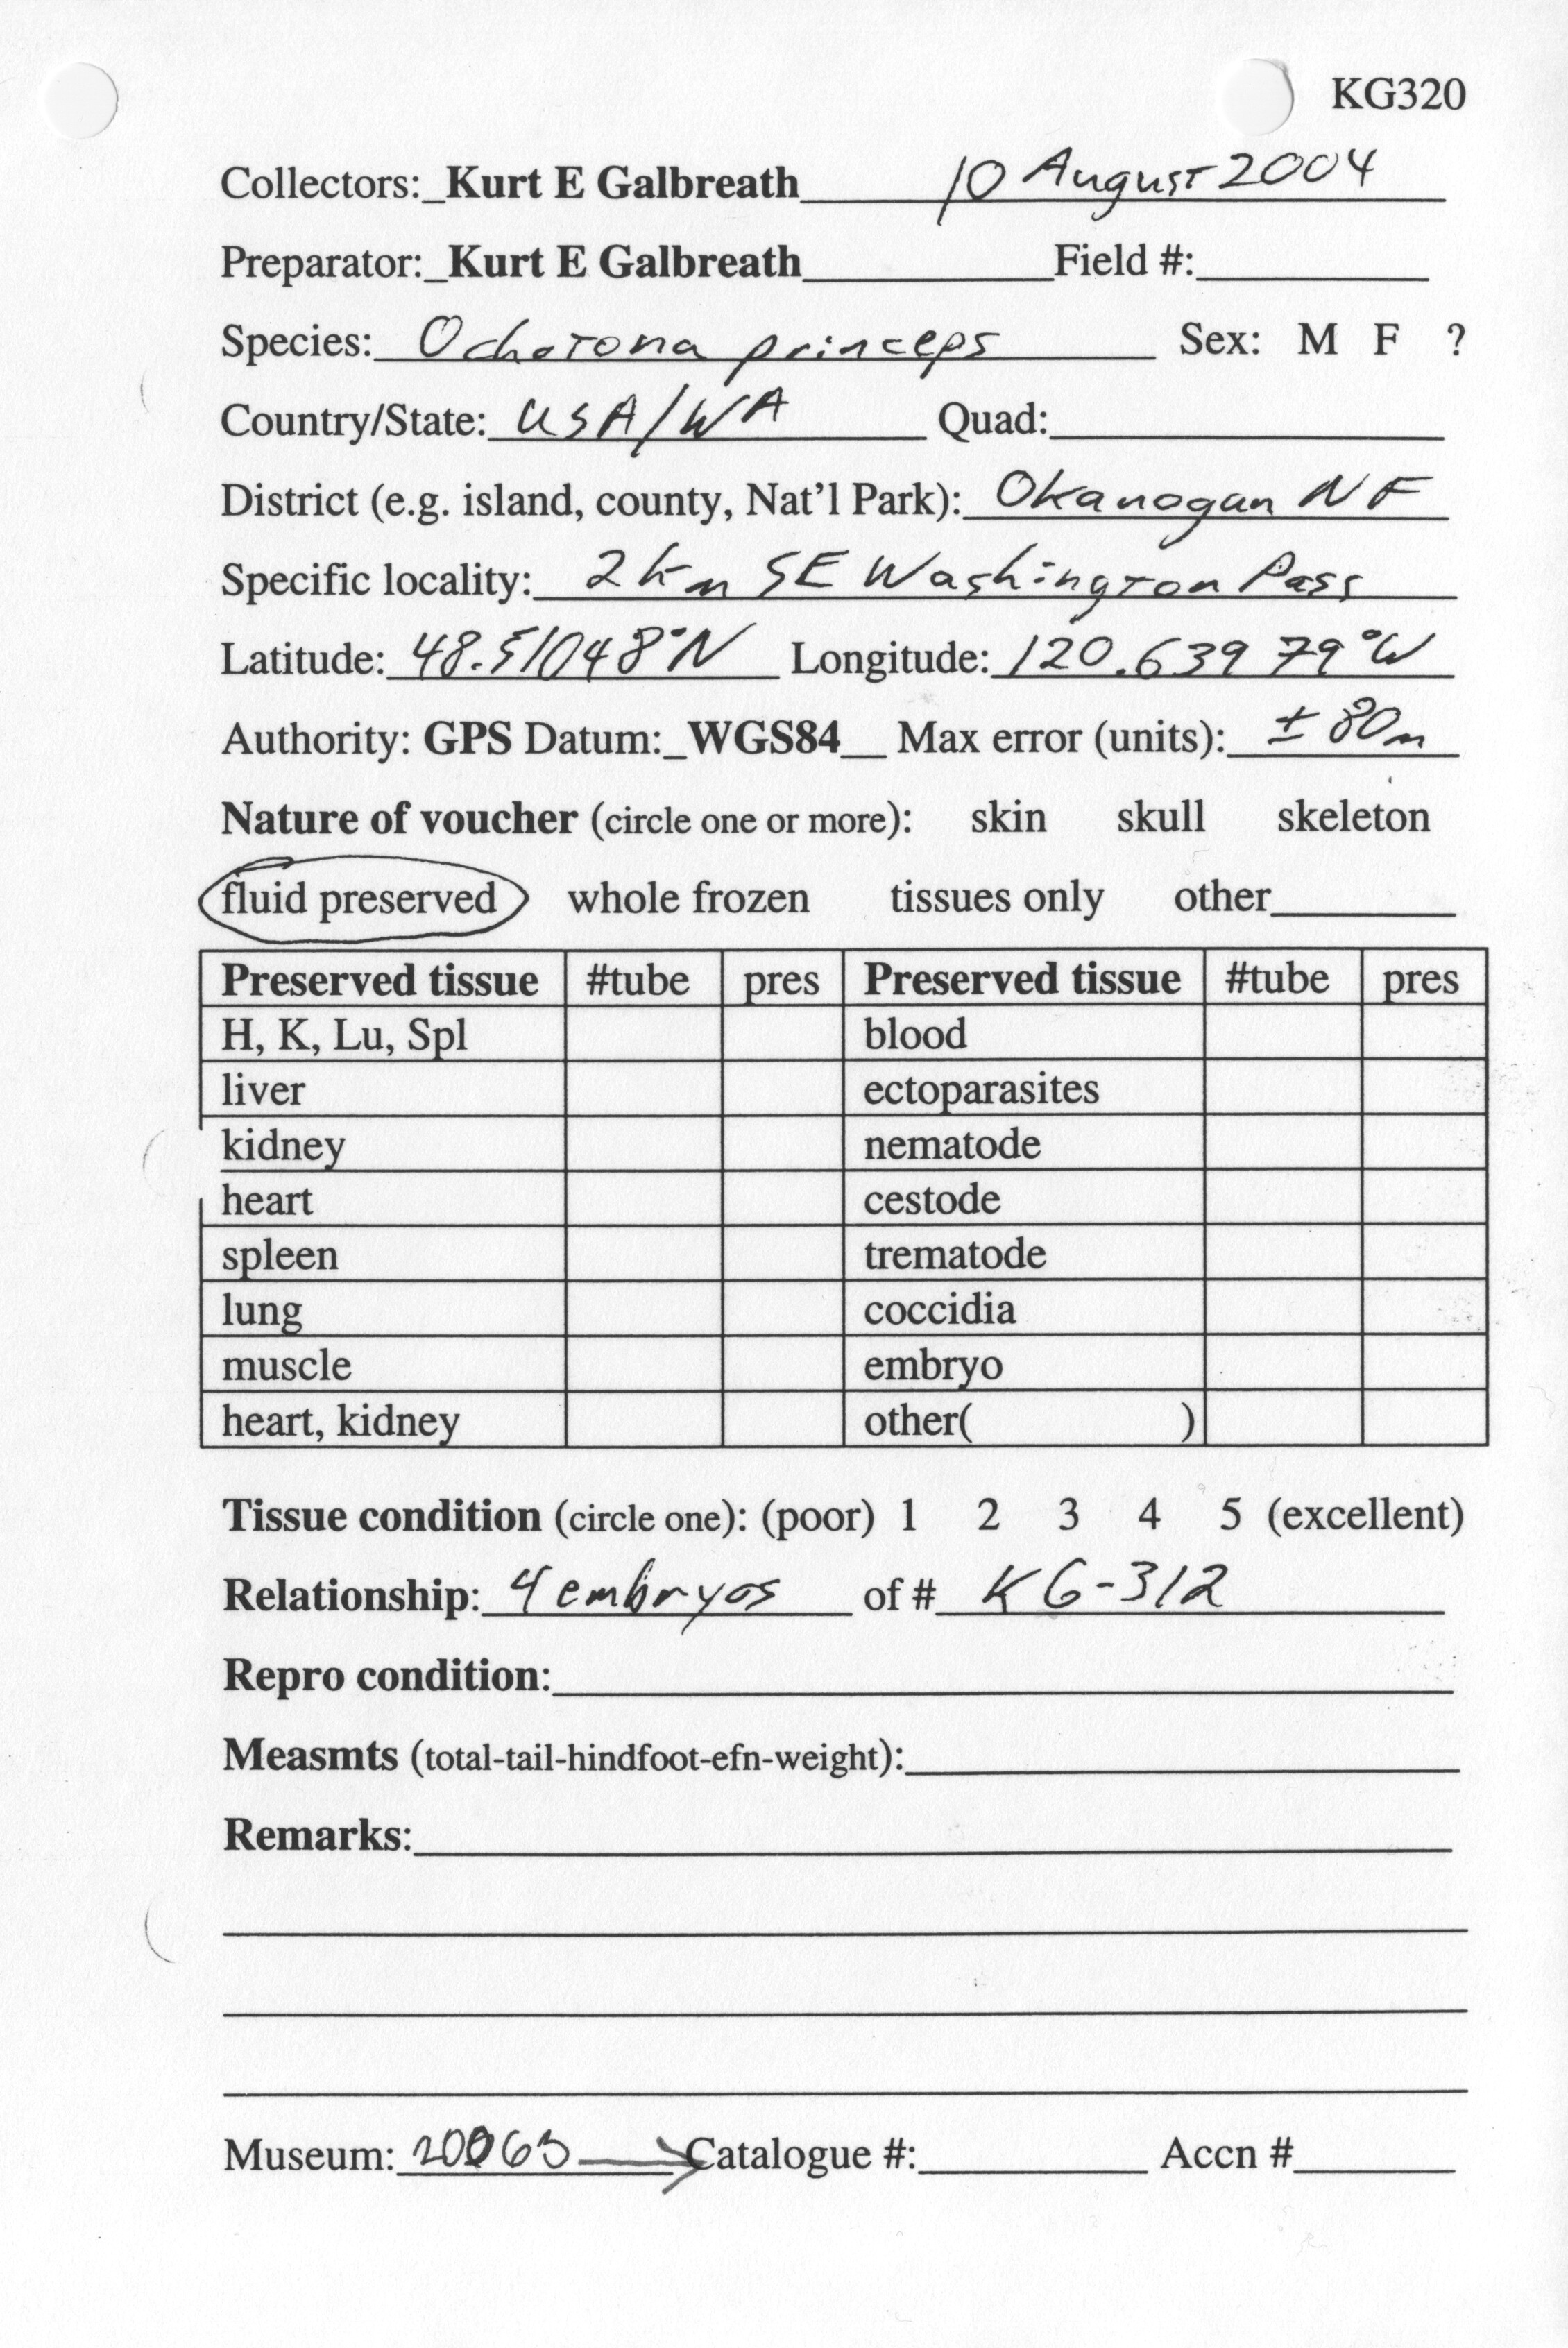 KG320
Collectors:_Kurt E Galbreath 10 August 2004
Preparator:_Kurt E Galbreath Field #:
Species: Ochotona princeps Sex: M F ?
Country/State: USA/WA Quad:
District (e.g. island, county, Nat'l Park): Okanogan NF
Specific locality: 2 km SE Washington Pass
Latitude: 48.51048°N Longitude: 120.63979°W
Authority: GPS Datum:_WGS84__ Max error (units): ± 80m
Nature of voucher (circle one or more): skin skull skeleton
fluid preserved whole frozen tissues only other
Preserved tissue #tube pres Preserved tissue #tube pres
H, K, Lu, Spl blood
liver ectoparasites
kidney nematode
heart cestode
spleen trematode
lung coccidia
muscle embryo
heart, kidney other( )
Tissue condition (circle one): (poor) 1 2 3 4 5 (excellent)
Relationship: 4 embryos of # KG-312
Repro condition:
Measmts (total-tail-hindfoot-efn-weight):
Remarks:
Museum: 20063 → Catalogue #: Accn #